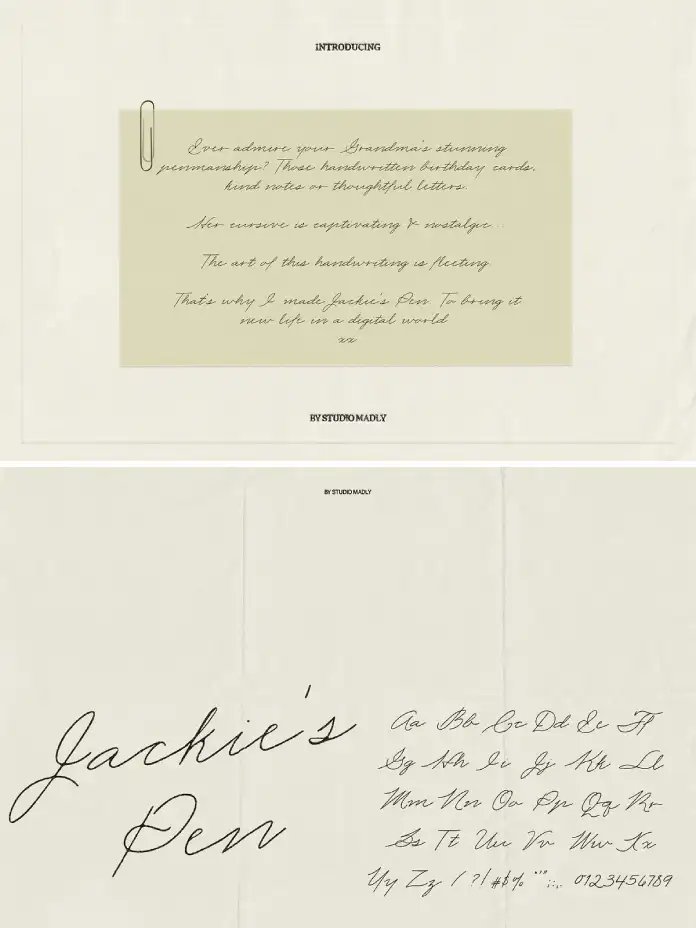 INTRODUCING
Ever admire your Grandma's stunning
penmanship? Those handwritten birthday cards,
kind notes or thoughtful letters.
Her cursive is captivating & nostalgic...
The art of this handwriting is fleeting.
That's why I made Jackie's Pen. To bring it
new life in a digital world
xx
BY STUDIO MADLY
BY STUDIO MADLY
Jackie's
Pen
Aa Bb Cc Dd Ee Ff
Gg Hh Ii Jj Kk Ll
Mm Nn Oo Pp Qq Rr
Ss Tt Uu Vv Ww Xx
Yy Zz / ? ! # $ % 0123456789